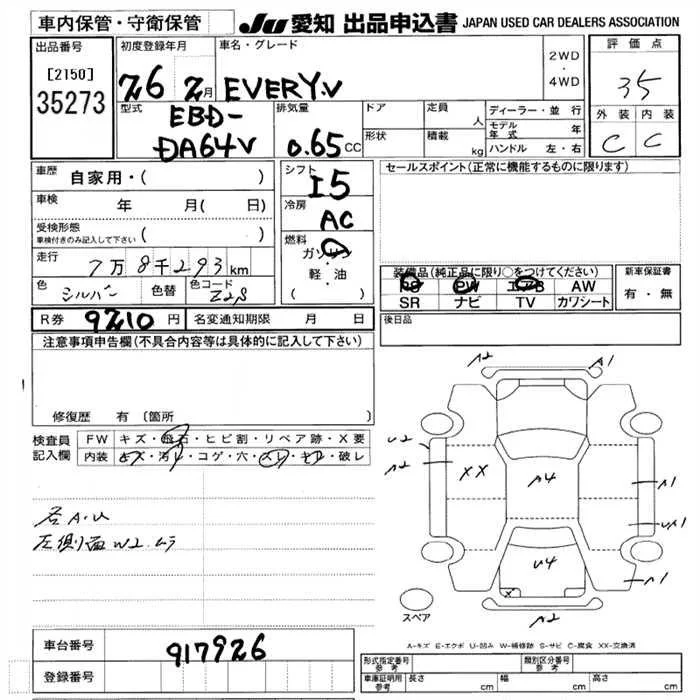 車内保管・守衛保管
JU 愛知 出品申込書 JAPAN USED CAR DEALERS ASSOCIATION
出品番号
[2150]
35273
初度登録年月
26 2月
車名・グレード
EVERY.V
2WD
・
4WD
評価点
35
外装 内装
C C
型式
EBD-
DA64V
排気量
0.65 CC
ドア
形状
定員 人
積載 kg
ディーラー・並行
モデル年式 年
ハンドル 左・右
車歴
自家用・( )
車検 年 月( 日)
受検形態
車検付きのみ記入して下さい ( )
走行 7万8千293km
色 シルバー 色替 色コード Z2S
シフト
I5
冷房
AC
燃料
ガソリン
・
軽・油
( )
セールスポイント(正常に機能するものに限ります)
装備品(純正品に限り○をつけてください)
PS PW エアB AW
SR ナビ TV カワシート
新車保証書
有・無
後日品
R券 9210 円 名変通知期限 月 日
注意事項申告欄(不具合内容等は具体的に記入して下さい)
修復歴 有 〔箇所
検査員
記入欄
FW キズ・飛石・ヒビ割・リペア跡・X要
内装 キズ・汚レ・コゲ・穴・スレ・キレ・破レ
各A.U
左側面W2.ムラ
A2 A1
U2
A2
XX
A4
A1
UA1
U4
X
A1
A2
スペア
A-キズ E-エクボ U-凹み W-補修跡 S-サビ C-腐食 XX-交換済
車台番号 917926
登録番号
形式指定番号
参考
類別区分番号
参考
車庫証明用
参考
長さ cm 幅 cm 高さ cm